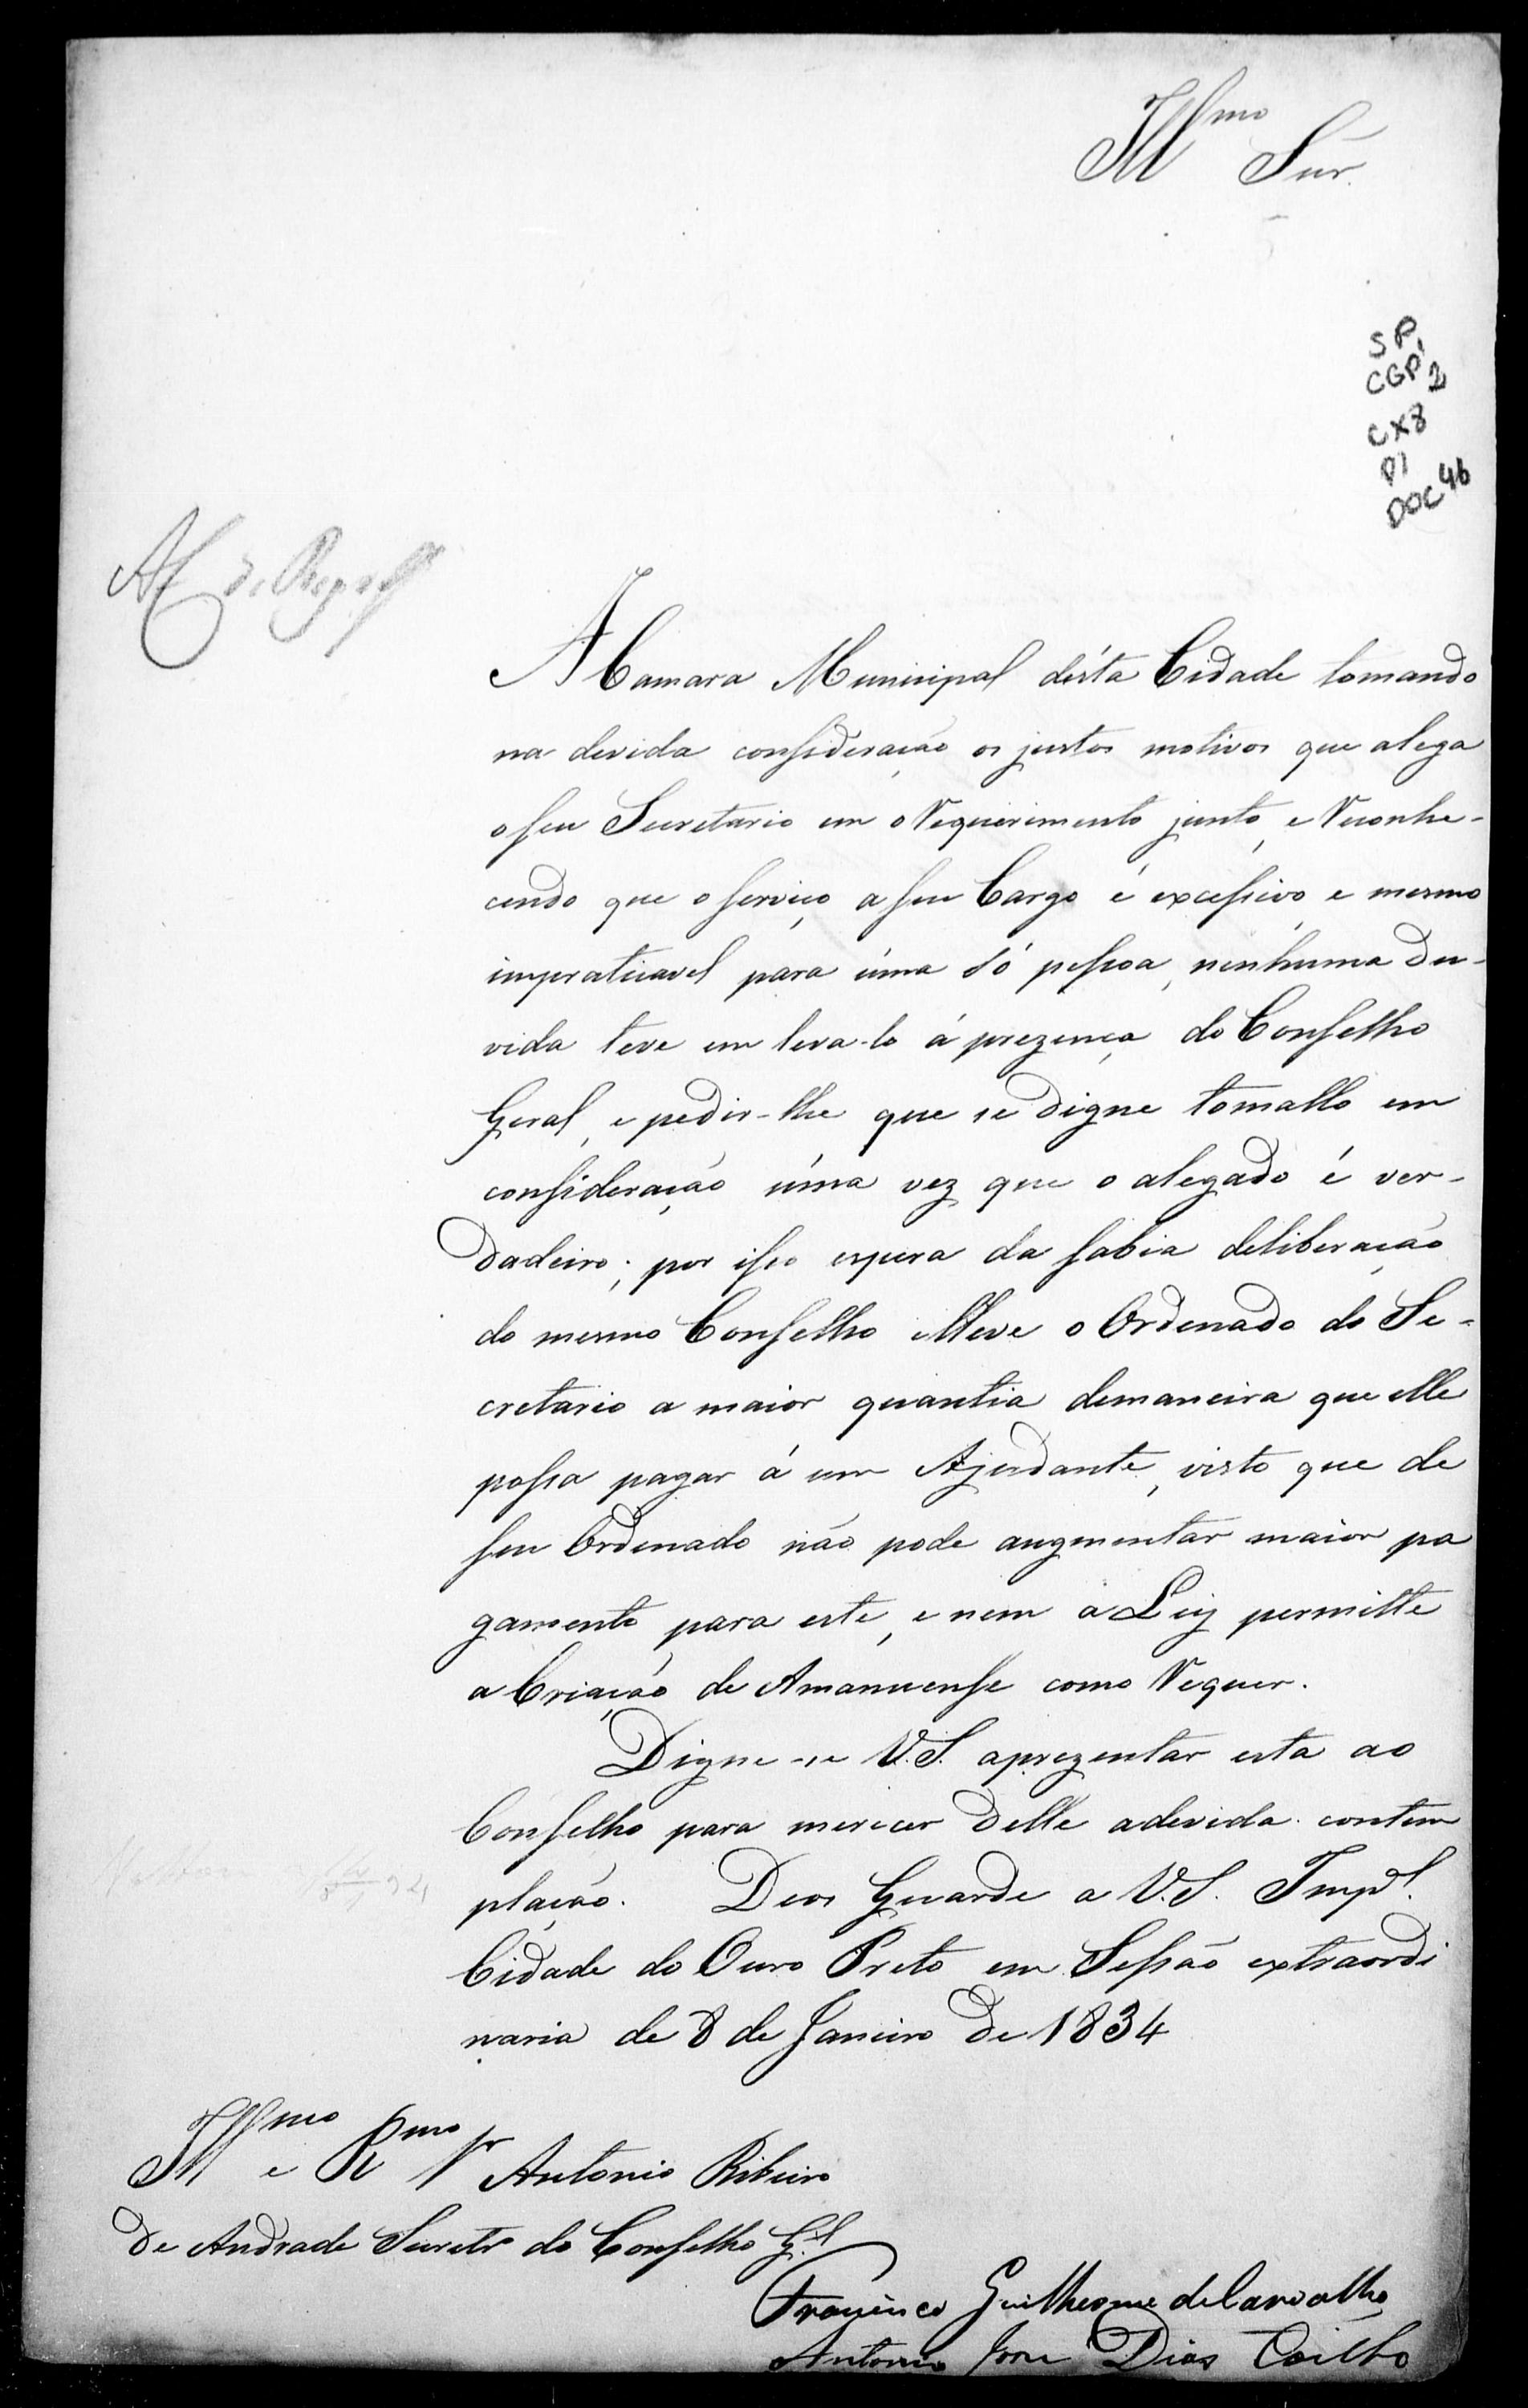 Illmo Snr.
SP,
CGP 2
CX8
DOC 46
A Camara Municipal désta Cidade tomando
na devida consideração os justos motivos que alega
o seu Secretario em o Requerimento junto, e Reconhe-
cendo que o serviço a seu Cargo é excessivo, e mesmo
impraticavel para úma só pessoa, nenhuma du-
vida teve em leva-lo á prezença do Conselho
Geral, e pedir-lhe que se digne tomallo em
consideração úma vez que o alegado é ver-
dadeiro; por isso espera da sabia deliberação
do mesmo Conselho elleve o Ordenado do Se-
cretario a maior quantia demaneira que elle
possa pagar á um Ajudante, visto que de
seu Ordenado não pode augmentar maior pa
gamento para este, e nem a Ley permitte
a Criação de Amanuense como Requer.
Digne-se V.S. aprezentar esta ao
Conselho para merecer delle a devida contem
plação. Deos Guarde a V.S. Impl.
Cidade do Ouro Preto em Sessão extraordi
naria de 8 de Janeiro de 1834
Illmo e Rmo Sr Antonio Ribeiro
de Andrade Secretr do Conselho Gl
Francisco Guilherme de Carvalho
Antonio Jose Dias Coelho